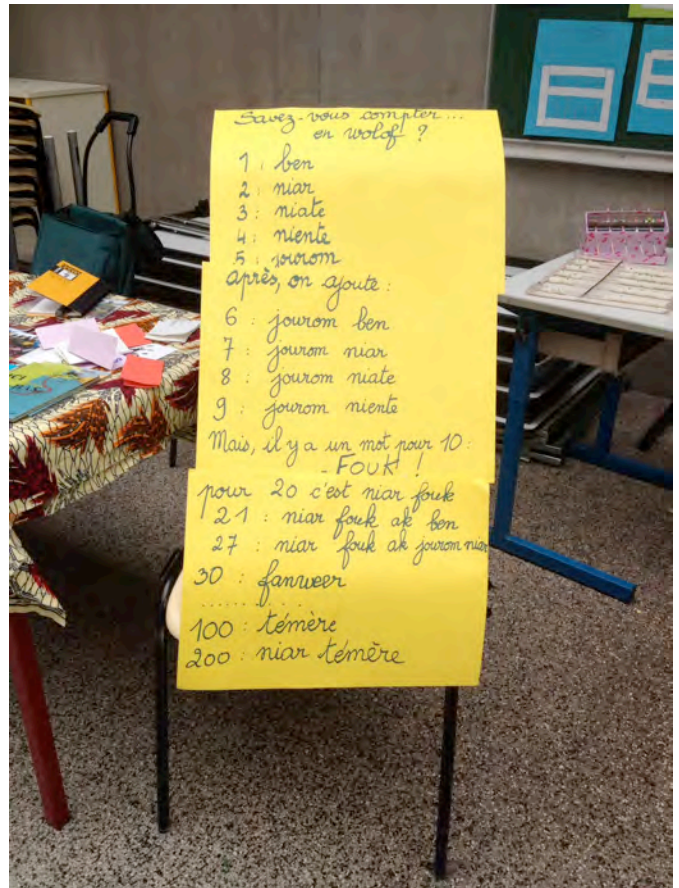 Savez-vous compter...
en wolof ?
1 : ben
2 : niar
3 : niate
4 : niente
5 : jourom
après, on ajoute :
6 : jourom ben
7 : jourom niar
8 : jourom niate
9 : jourom niente
Mais, il y a un mot pour 10 :
- FOUK !
pour 20 c'est niar fouk
21 : niar fouk ak ben
27 : niar fouk ak jourom niar
30 : fanweer
..........
100 : témère
200 : niar témère